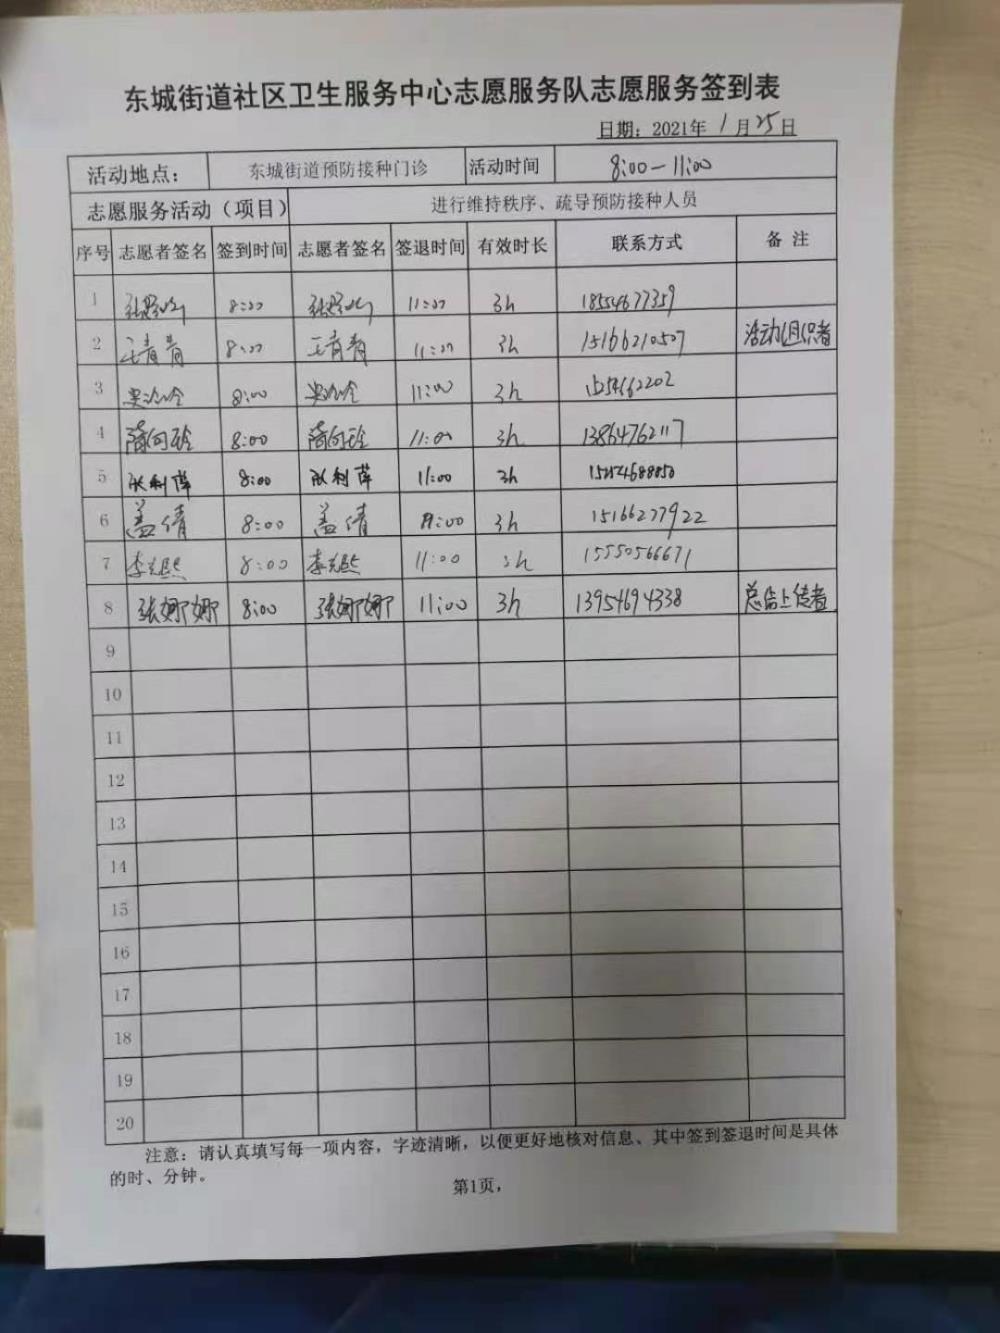 东城街道社区卫生服务中心志愿服务队志愿服务签到表
日期：2021年 1月25日
活动地点： 东城街道预防接种门诊 活动时间 8:00—11:00
志愿服务活动（项目） 进行维持秩序、疏导预防接种人员
序号 志愿者签名 签到时间 志愿者签名 签退时间 有效时长 联系方式 备注
1 8:00 11:00 3h 18554677359
2 王青青 8:00 王青青 11:00 3h 15166210507 活动组织者
3 8:00 11:00 3h
4 隋向玲 8:00 隋向玲 11:00 3h 13864762117
5 耿利萍 8:00 耿利萍 11:00 3h
6 盖倩 8:00 盖倩 11:00 3h 15166277922
7 李光熙 8:00 李光熙 11:00 3h 15550566671
8 张娜娜 8:00 张娜娜 11:00 3h 13954694338 总结上传者
9
10
11
12
13
14
15
16
17
18
19
20
注意：请认真填写每一项内容，字迹清晰，以便更好地核对信息、其中签到签退时间是具体
的时、分钟。
第1页，